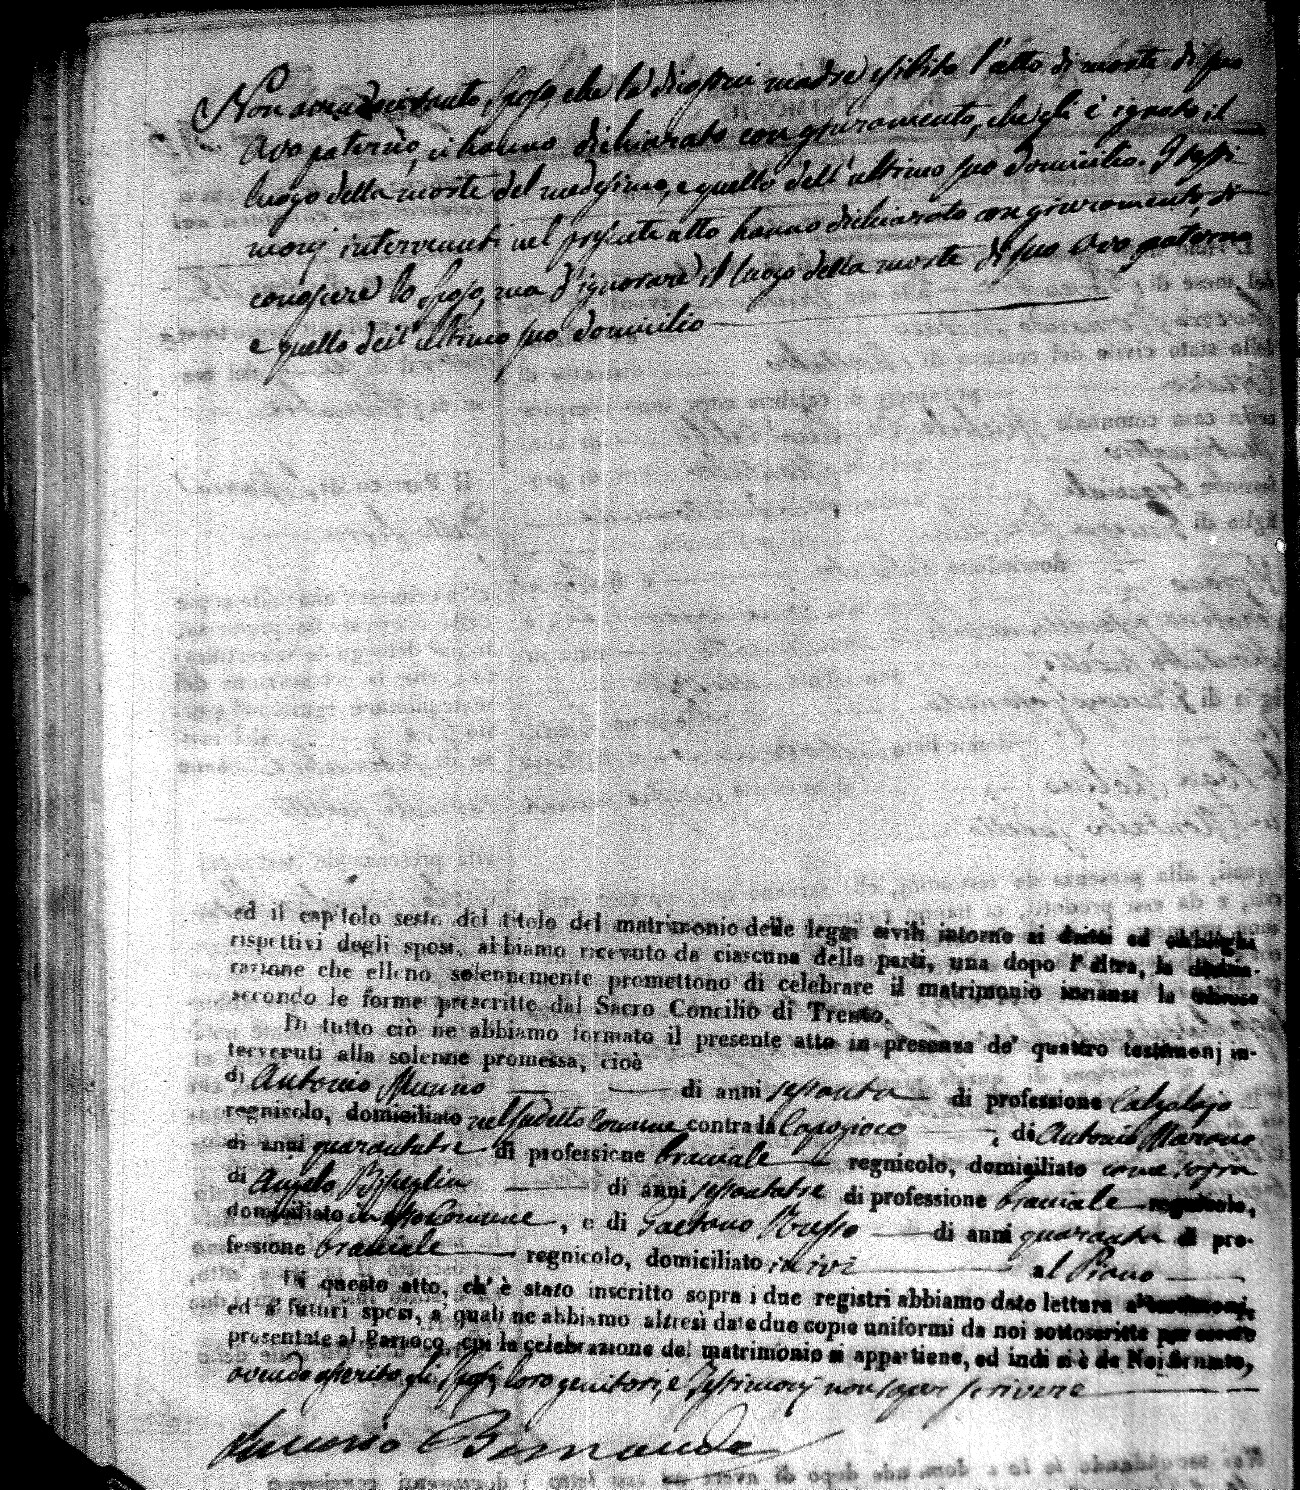 Non avendo lo sposo, che la di cui madre esibito l'atto di morte di suo
Avo paterno, ci hanno dichiarato con giuramento, che gli è ignoto il
luogo della morte del medesimo, e quello dell'ultimo suo domicilio. I testi
monj intervenuti nel presente atto hanno dichiarato con giuramento, di
conoscere lo sposo, ma d'ignorare il luogo della morte di suo Avo paterno
e quello dell'ultimo suo domicilio
ed il capitolo sesto del titolo del matrimonio delle leggi civili intorno ai dritti ed obblighi
rispettivi degli sposi, abbiamo ricevuto da ciascuna delle parti, una dopo l'altra, la dichia-
razione che elleno solennemente promettono di celebrare il matrimonio innanzi la Chiesa
secondo le forme prescritte dal Sacro Concilio di Trento.
Di tutto ciò ne abbiamo formato il presente atto in presenza de' quattro testimonj in-
tervenuti alla solenne promessa, cioè
di Antonio di anni sessanta di professione Calzolajo
regnicolo, domiciliato nel sudetto Comune contrada Capozioco, di Antonio Marone
di anni quarantatre di professione bracciale regnicolo, domiciliato come sopra
di Angelo Bisceglia di anni sessantatre di professione bracciale regnicolo,
domiciliato in esso Comune, e di Gaetano Russo di anni quaranta di pro-
fessione bracciale regnicolo, domiciliato in ivi al Piano
Di questo atto, ch' è stato inscritto sopra i due registri abbiamo dato lettura a' testimonj,
ed a' futuri sposi, a' quali ne abbiamo altresì date due copie uniformi da noi sottoscritte per essere
presentate al Parroco, cui la celebrazione del matrimonio si appartiene, ed indi si è da Noi firmato,
avendo asserito gli sposi, loro genitori, e testimonj non saper scrivere